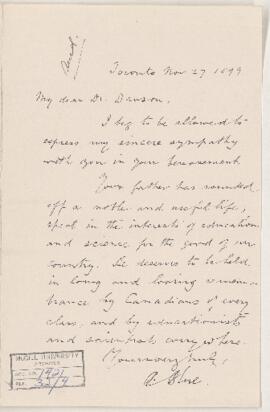 Toronto Nov 27 1899
My dear Dr. Dawson,
I beg to be allowed to
express my sincere sympathy
with you in your bereavement.
Your father has rounded
off a noble and useful life,
spent in the interests of education
and science for the good of our
country. He deserves to be held
in long and loving remem-
brance by Canadians of every
class, and by educationists
and scientists everywhere.
Yours very truly,
McGILL UNIVERSITY
ARCHIVES
ACC. NO. 1421
REF.